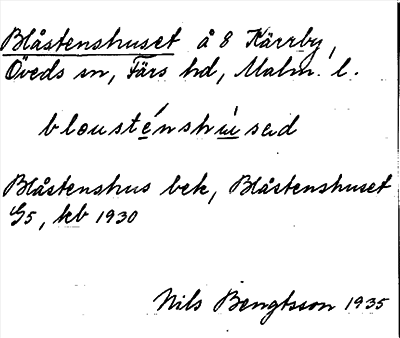 Blåstenshuset å 8 Kärrby,
Öveds sn, Färs hd, Malm. l.
blousténshúsad
Blåstenshus bek, Blåstenshuset
G5, kb 1930
Nils Bengtsson 1935